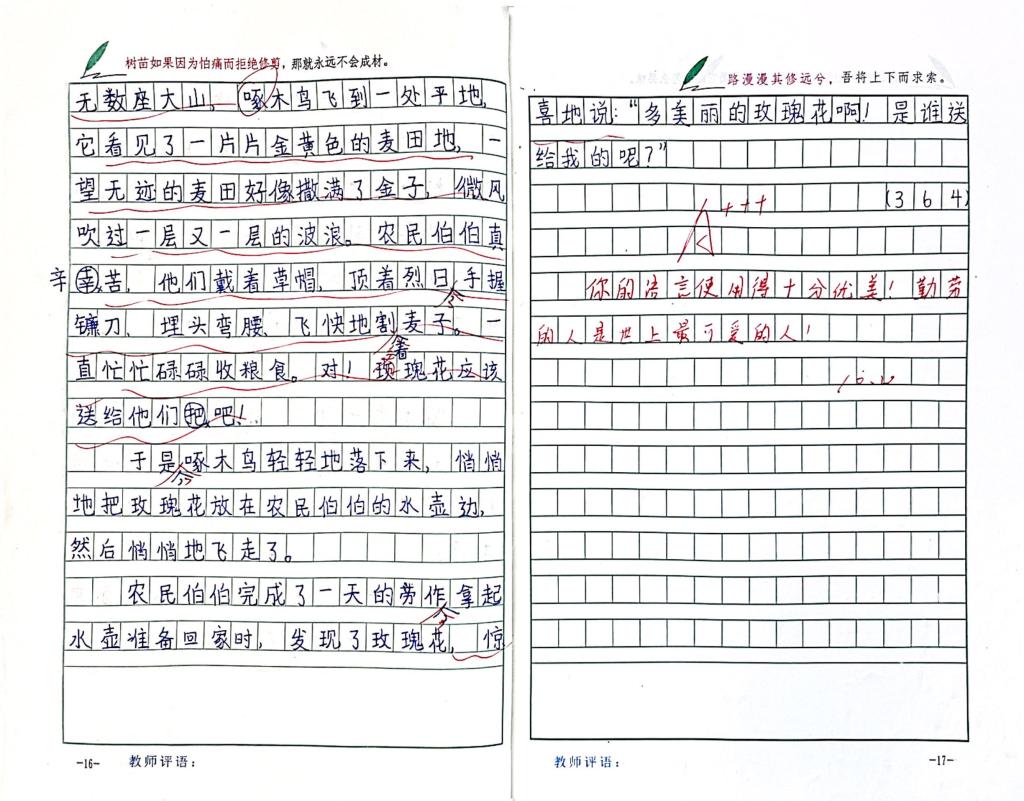 树苗如果因为怕痛而拒绝修剪，那就永远不会成材。
无数座大山。啄木鸟飞到一处平地，
它看见了一片片金黄色的麦田地，一
望无迹的麦田好像撒满了金子，微风
吹过一层又一层的波浪。农民伯伯真
辛苦，他们戴着草帽，顶着烈日，手握
镰刀、埋头弯腰、飞快地割着麦子。一
直忙忙碌碌收粮食。对！瑰花应该
送给他们把吧！
于是，啄木鸟轻轻地落下来，悄悄
地把玫瑰花放在农民伯伯的水壶边，
然后悄悄地飞走了。
农民伯伯完成了一天的劳作，拿起
水壶准备回家时，发现了玫瑰花，惊
-16- 教师评语：
路漫漫其修远兮，吾将上下而求索。
喜地说：“多美丽的玫瑰花啊！是谁送
给我的吧？”
(364)
A+++
你的语言使用得十分优美！勤劳
的人是世上最可爱的人！
教师评语： -17-